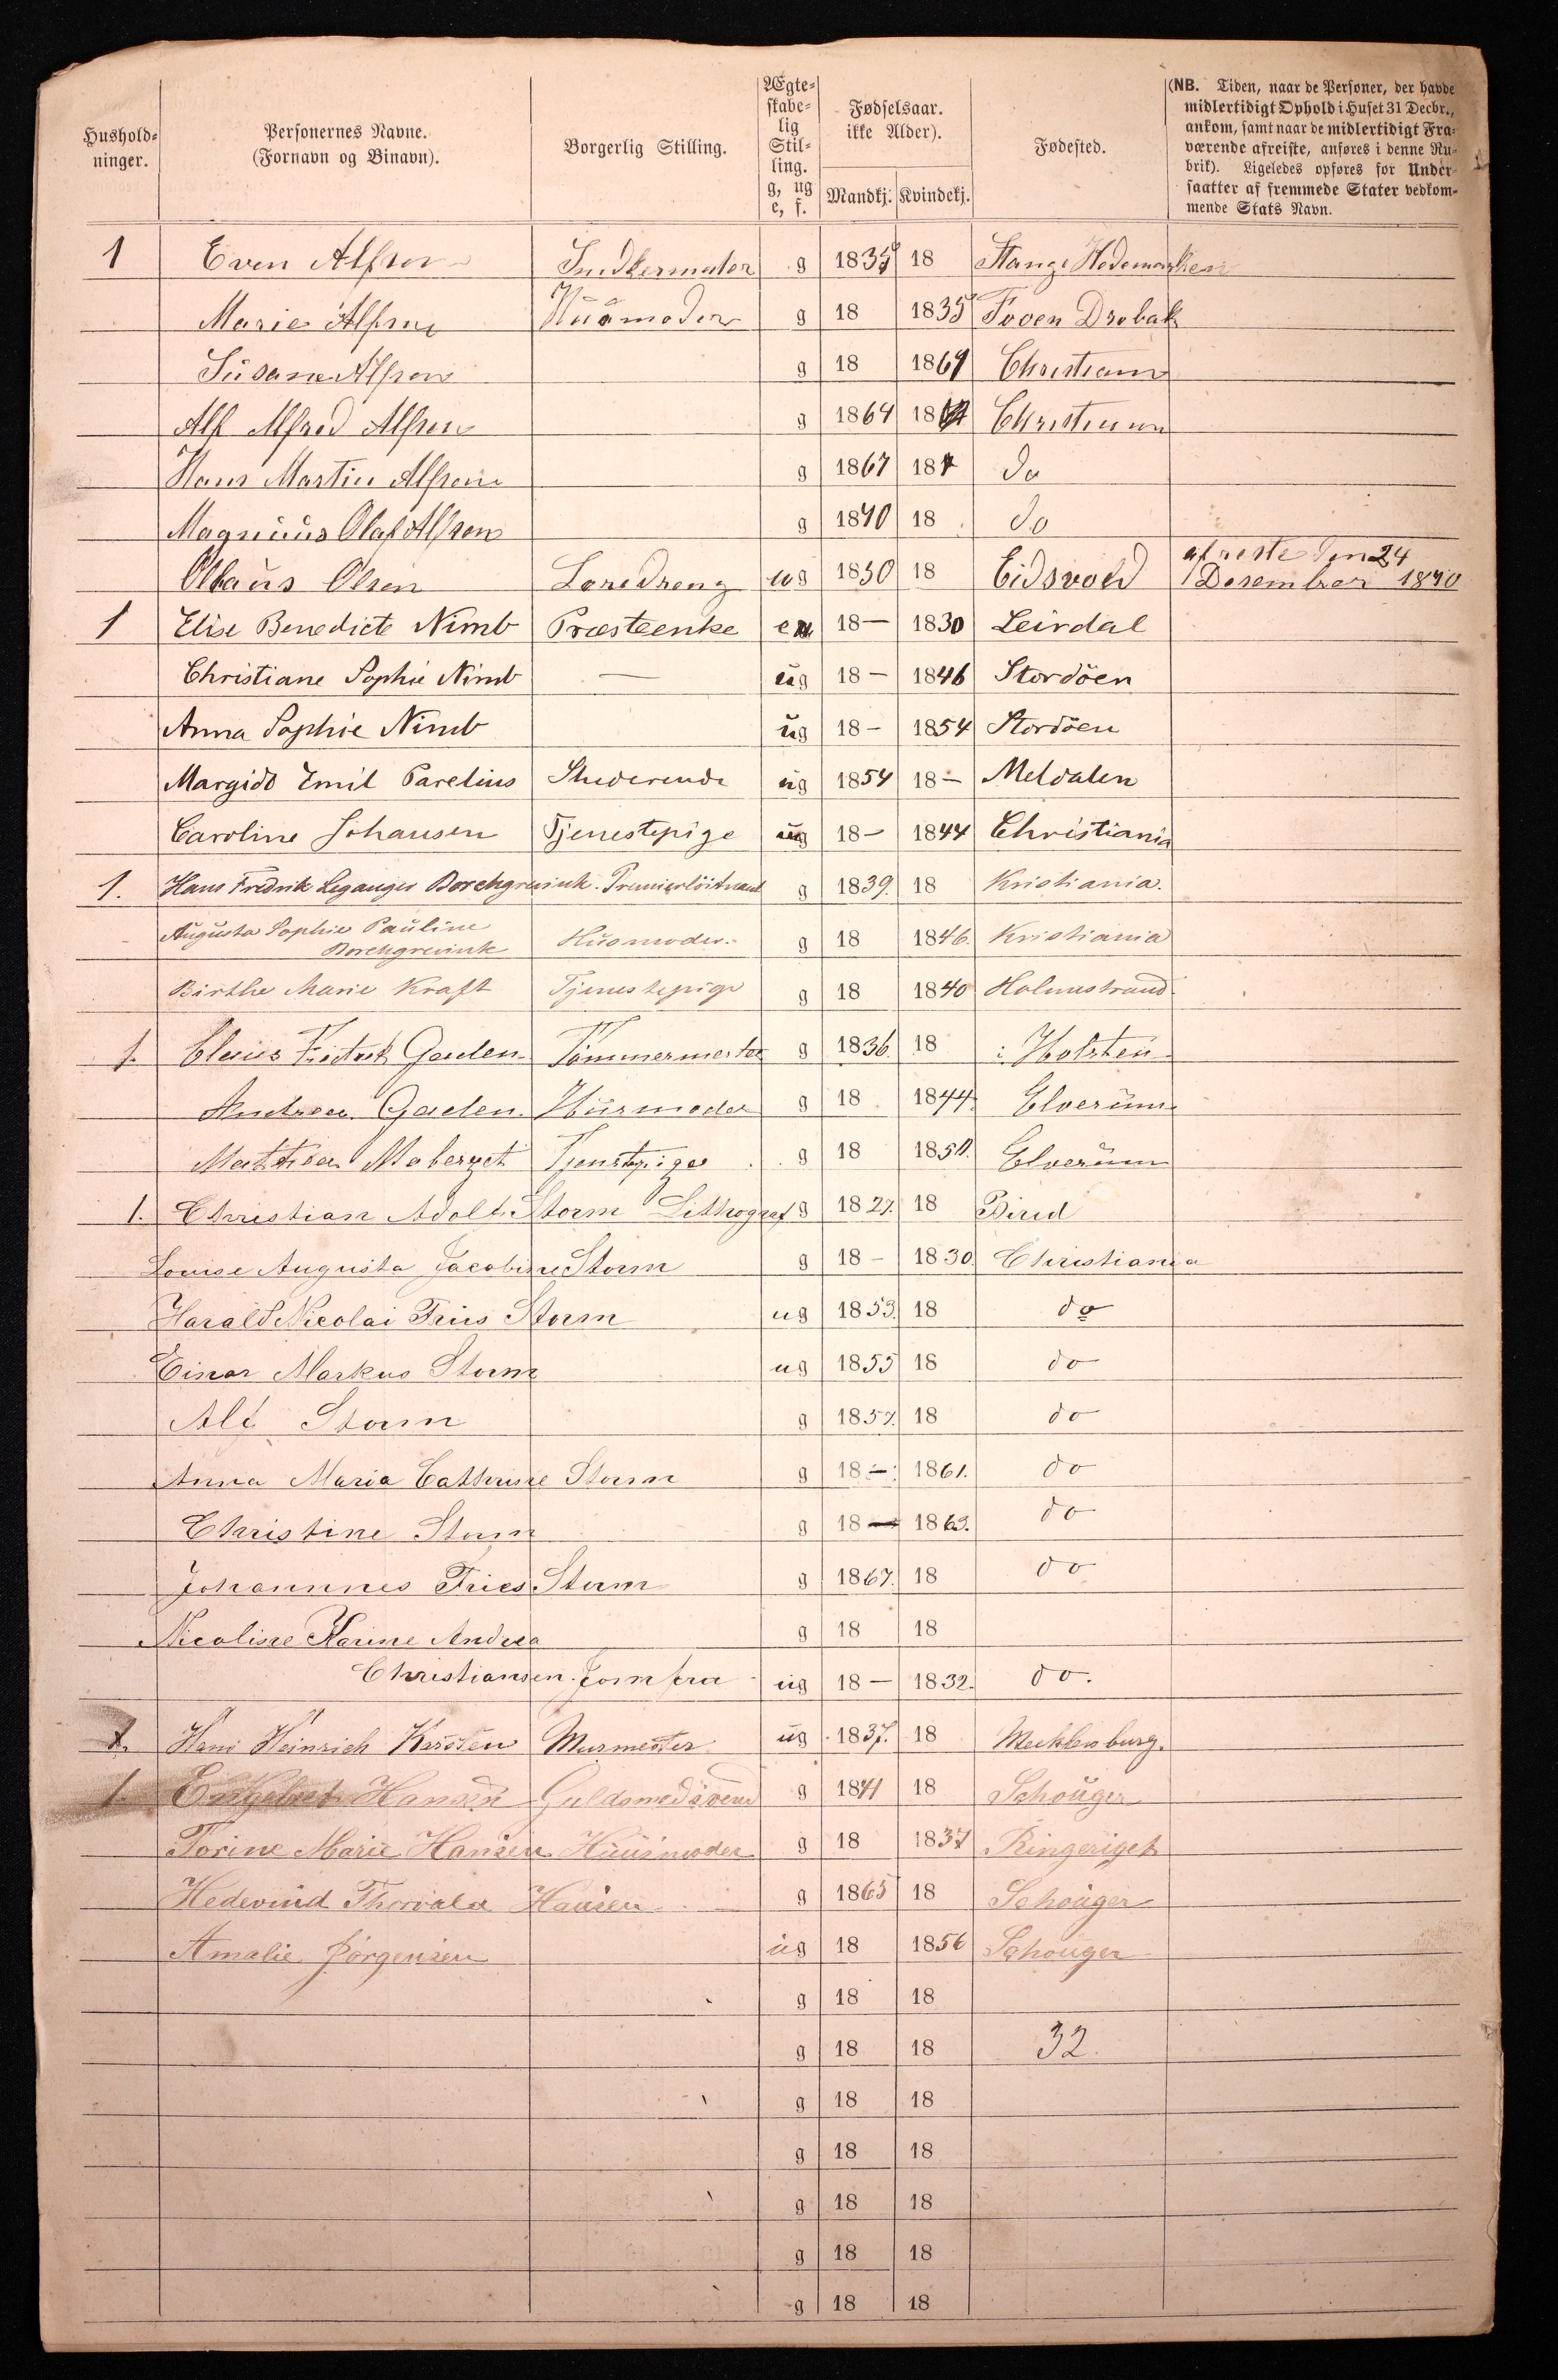 Hushold-
ninger.
Personernes Navne.
(Fornavn og Binavn).
Borgerlig Stilling.
Ægte-
skabe-
lig
Stil-
ling.
g, ug
e, f.
Fødselsaar.
ikke Alder).
Mandkj. Kvindekj.
Fødested.
(NB. Tiden, naar de Personer, der havde
midlertidigt Ophold i Huset 31 Decbr.,
ankom, samt naar de midlertidigt Fra-
værende afreiste, anføres i denne Ru-
brik). Ligeledes opføres for Under-
saatter af fremmede Stater vedkom-
mende Stats Navn.
1 Even Alfsen g 1835 18 Stange Hedemarken
Marie Alfsen Huusmoder g 18 1835 Drøbak
Susane Alfsen g 18 1861 Christiania
Alf Alfred Alfsen g 1864 18 Christiania
Hans Martin Alfsen g 1867 18 do
Magnuus Olaf Alfsen g 1870 18 do
Olaus Olsen Læredreng ug 1850 18 Eidsvold afreste den 24
Desember 1870
1 Elise Benedicte Nimb Præsteenke e 18— 1830 Leirdal
Christiane Sophie Nimb — ug 18— 1846 Stordöen
Anna Sophie Nimb ug 18— 1854 Stordöen
Margido Emil Parelius Studerende ug 1854 18— Meldalen
Caroline Johansen Tjenestepige ug 18— 1844 Christiania
1. Hans Fredrik Leganger Borchgrevink. Premierlöitnant g 1839. 18 Kristiania.
Augusta Sophie Pauline
Borchgrevink Husmoder. g 18 1846. Kristiania
Birthe Marie Kraft Tjenestepige g 18 1840 Holmestrand
1. Claus Fredrik Gaden Tömmermester g 1836. 18 i Holsten
Andrea Gaden. Husmoder g 18 1844. Elverum
Mathea Moberget Tjenstepige g 18 1850. Elverum
1. Christian Adolf Storm Lithograf g 1827. 18 Birid
Louise Augusta Jacobine Storm g 18— 1830. Christiania
Harald Nicolai Friis Storm ug 1853. 18 do
Einar Markus Storm ug 1855 18 do
Alf Storm g 1857. 18 do
Anna Maria Cathrine Storm g 18— 1861. do
Christine Storm g 18— 1863. do
Johannes Friis Storm g 1867. 18 do
Nicoline Karine Andrea g 18 18
Christiansen. Jomfru ug 18— 1832. do.
1. Hans Heinrich Karsten Murmester ug 1837. 18 Mecklenburg.
1. Engebret Hansen Guldsmedsvend g 1841 18 Schouger
Torine Marie Hansen Huusmoder g 18 1837 Ringeriget
Hedevind Thorvald Hansen g 1865 18 Schouger
Amalie Jörgensen ug 18 1856 Schouger
g 18 18
g 18 18 32
g 18 18
g 18 18
g 18 18
g 18 18
g 18 18